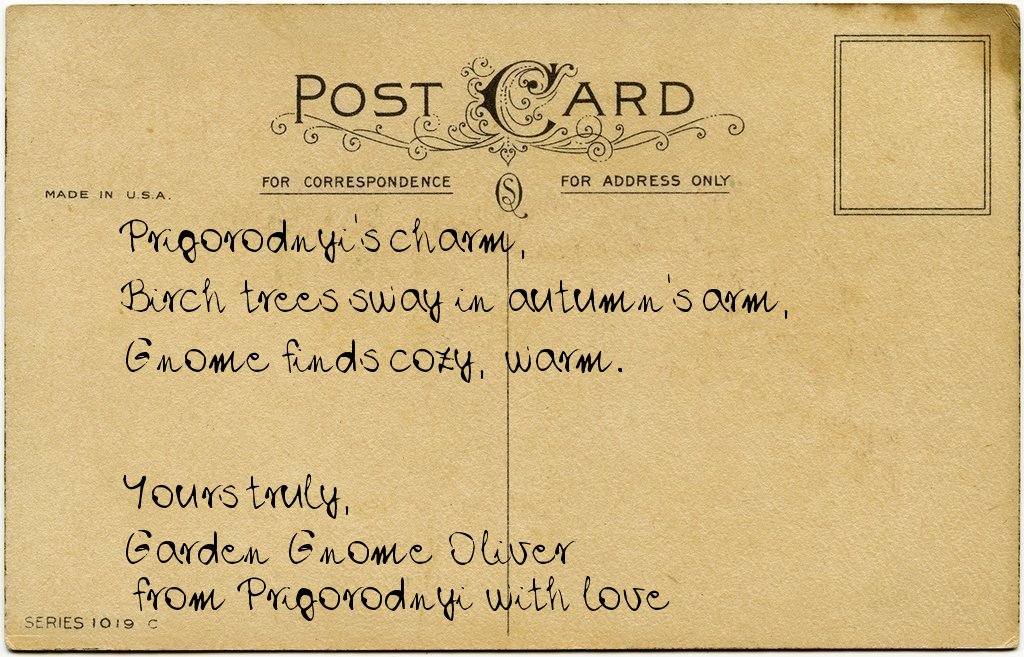 POST CARD
FOR CORRESPONDENCE
FOR ADDRESS ONLY
MADE IN U.S.A.
Prigorodnyi's charm,
Birch trees sway in autumn's arm,
Gnome finds cozy, warm.
Yours truly,
Garden Gnome Oliver
from Prigorodnyi with love
SERIES 1019 C